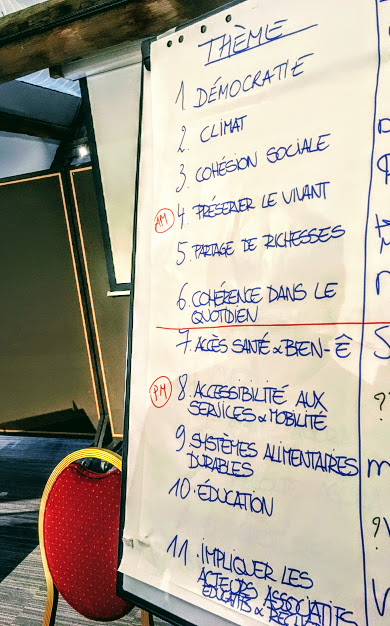 THÈME
1 DÉMOCRATIE
2. CLIMAT
3. COHÉSION SOCIALE
AM 4. PRÉSERVER LE VIVANT
5. PARTAGE DE RICHESSES
6. COHÉRENCE DANS LE
QUOTIDIEN
7. ACCÈS SANTÉ & BIEN-Ê
PM 8. ACCESSIBILITÉ AUX
SERVICES & MOBILITÉ
9. SYSTÈMES ALIMENTAIRES
DURABLES
10. ÉDUCATION
11. IMPLIQUER LES
ACTEURS ASSOCIATIFS
ÉDUCATIFS &